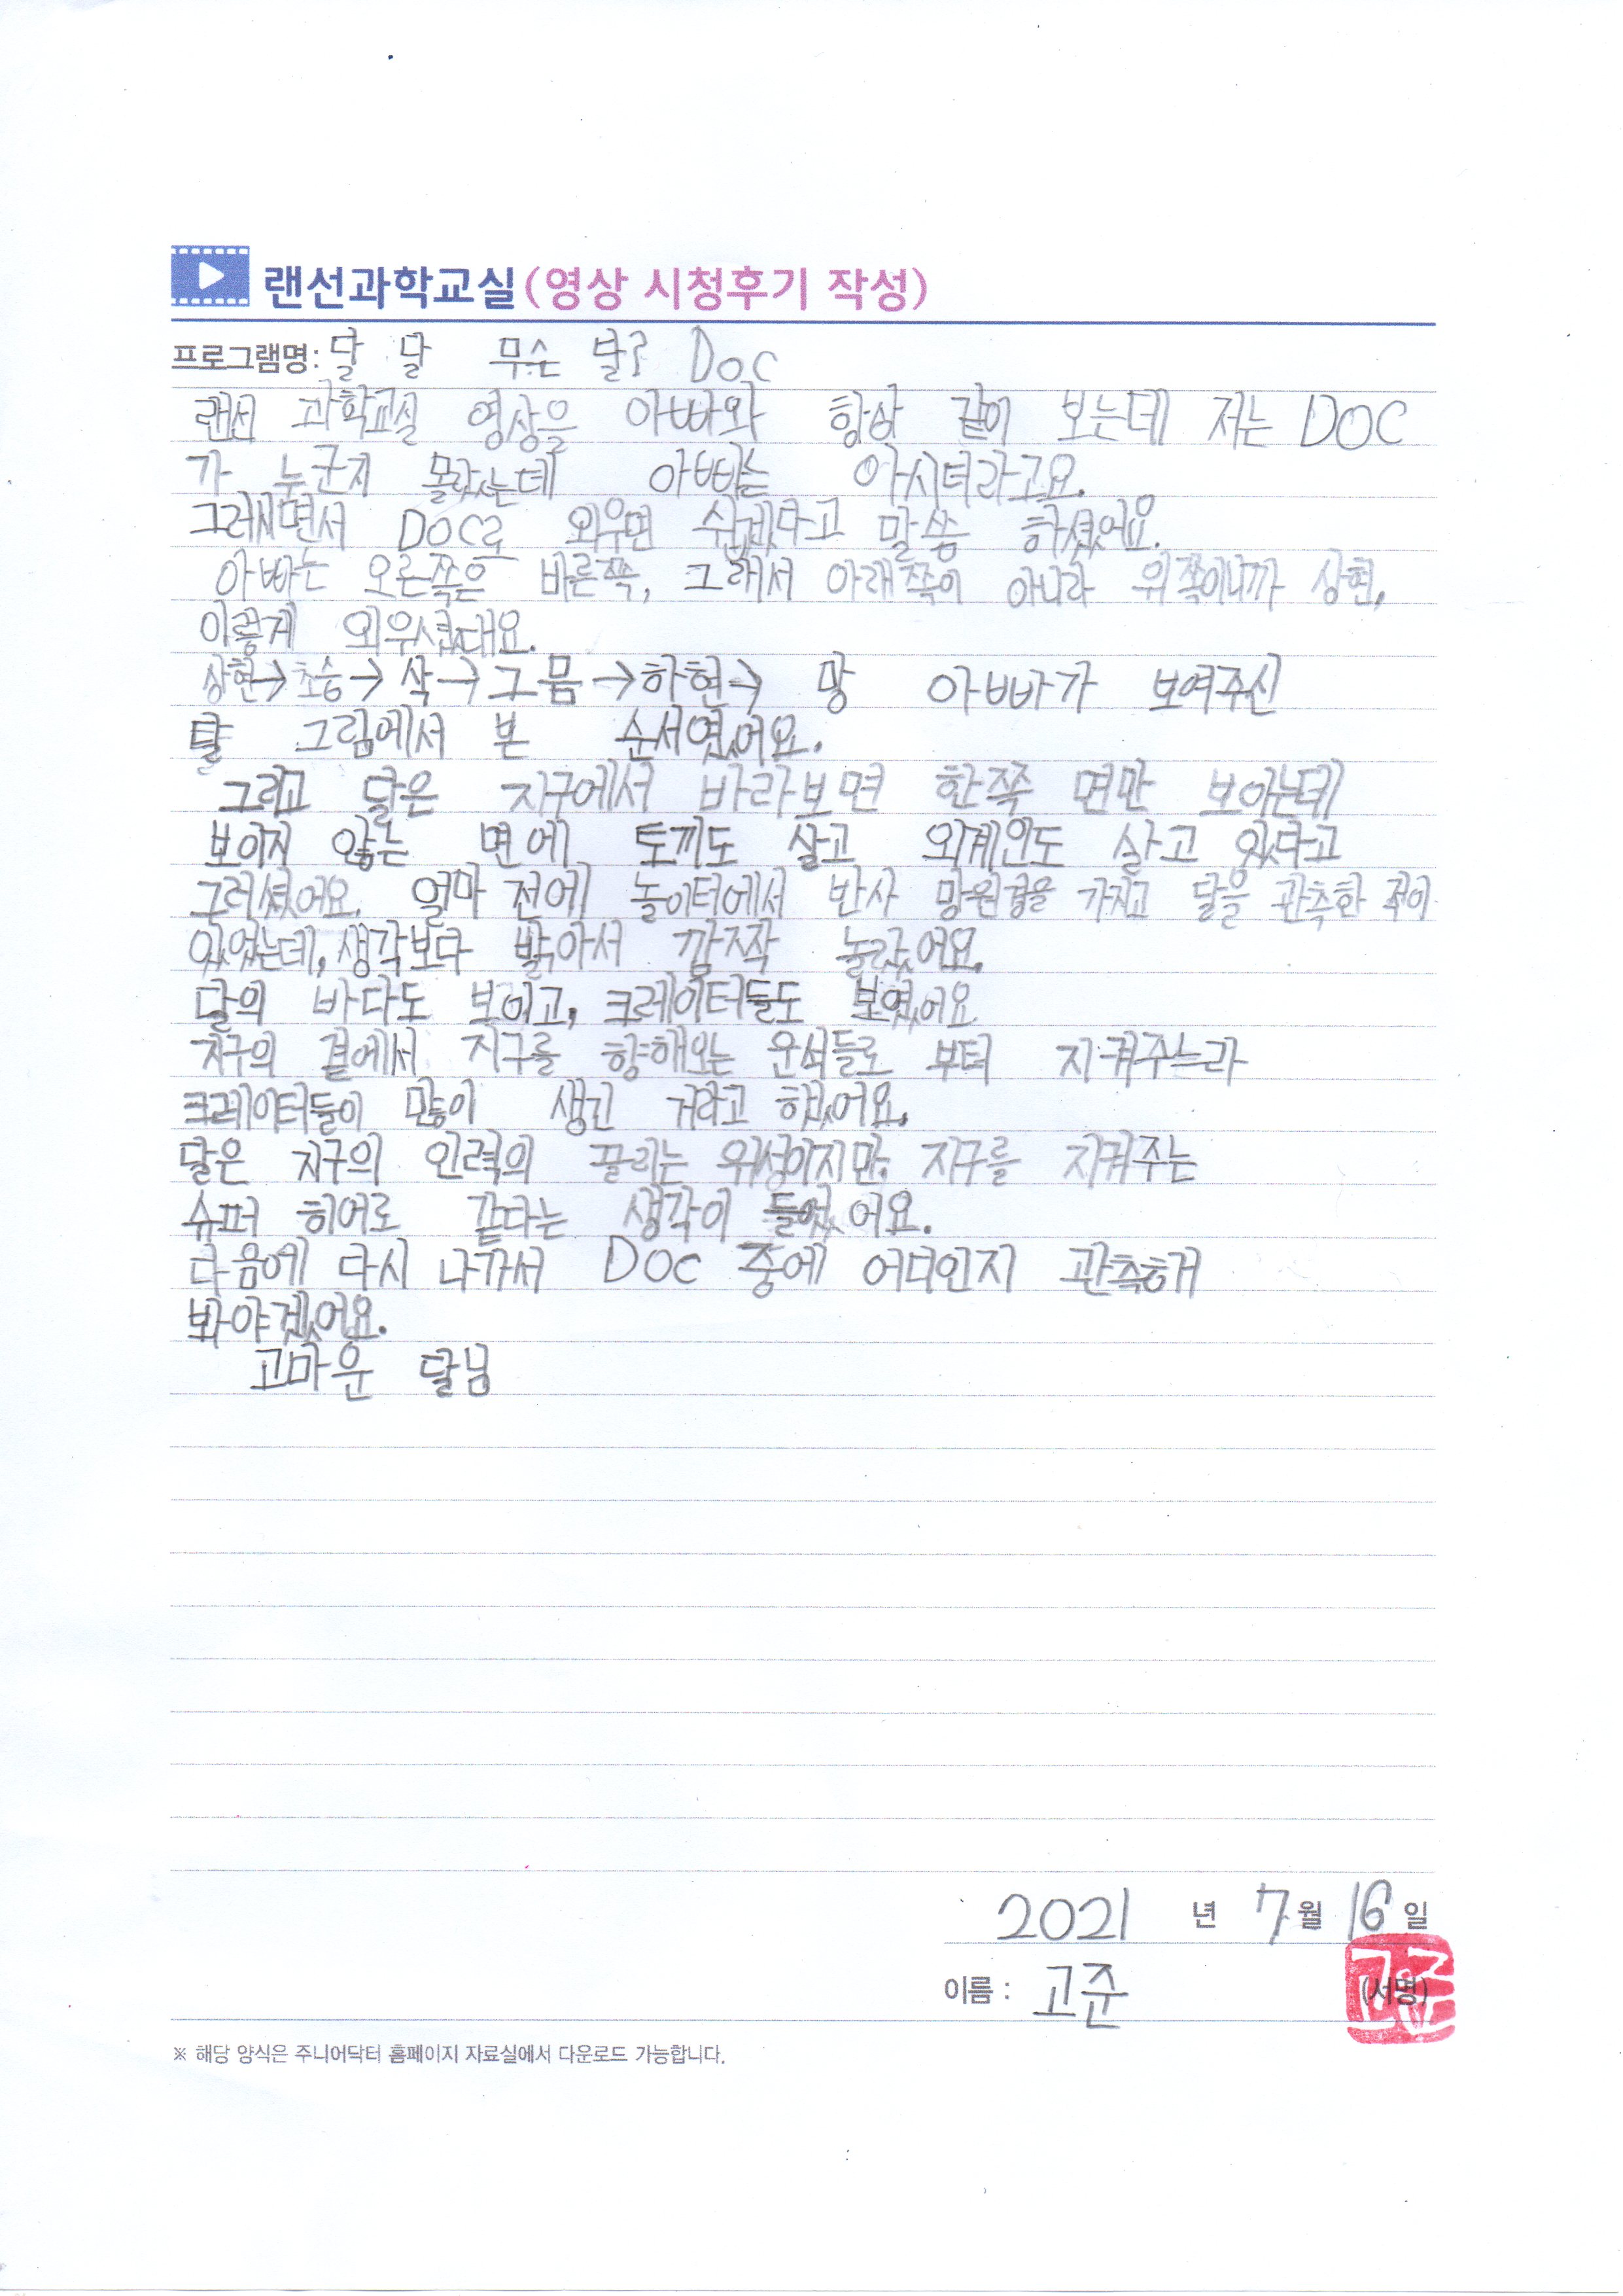 랜선과학교실(영상 시청후기 작성)
프로그램명: 달 달 무슨 Doc
랜선 과학교실 영상을 아빠와 항상 같이 보는데 저는 DOC
가 누군지 몰랐는데 아빠는 아시더라고요.
그러시면서 DOC로 외우면 쉽겠다고 말씀 하셨어요.
아빠는 오른쪽은 바른쪽, 그래서 아래쪽이 아니라 위쪽이니까 상현,
이렇게 외우셨대요.
상현→초승→삭→그믐→하현→ 망 아빠가 보여주신
달 그림에서 본 순서였어요.
그리고 달은 지구에서 바라보면 한쪽 면만 보이는데
보이지 않는 면에 토끼도 살고 외계인도 살고 있다고
그러셨어요. 얼마 전에 놀이터에서 반사 망원경을 가지고 달을 관측한 적이
있었는데, 생각보다 밝아서 깜짝 놀랐어요.
달의 바다도 보이고, 크레이터들도 보였어요
지구의 곁에서 지구를 향해오는 운석들로 부터 지켜주느라
크레이터들이 많이 생긴 거라고 했어요.
달은 지구의 인력의 끌리는 위성이지만, 지구를 지켜주는
슈퍼 히어로 같다는 생각이 들었어요.
다음에 다시 나가서 DOC 중에 어디인지 관측해
봐야겠어요.
고마운 달님
2021 년 7월 16일
이름 : 고준 (서명)
고준
※ 해당 양식은 주니어닥터 홈페이지 자료실에서 다운로드 가능합니다.